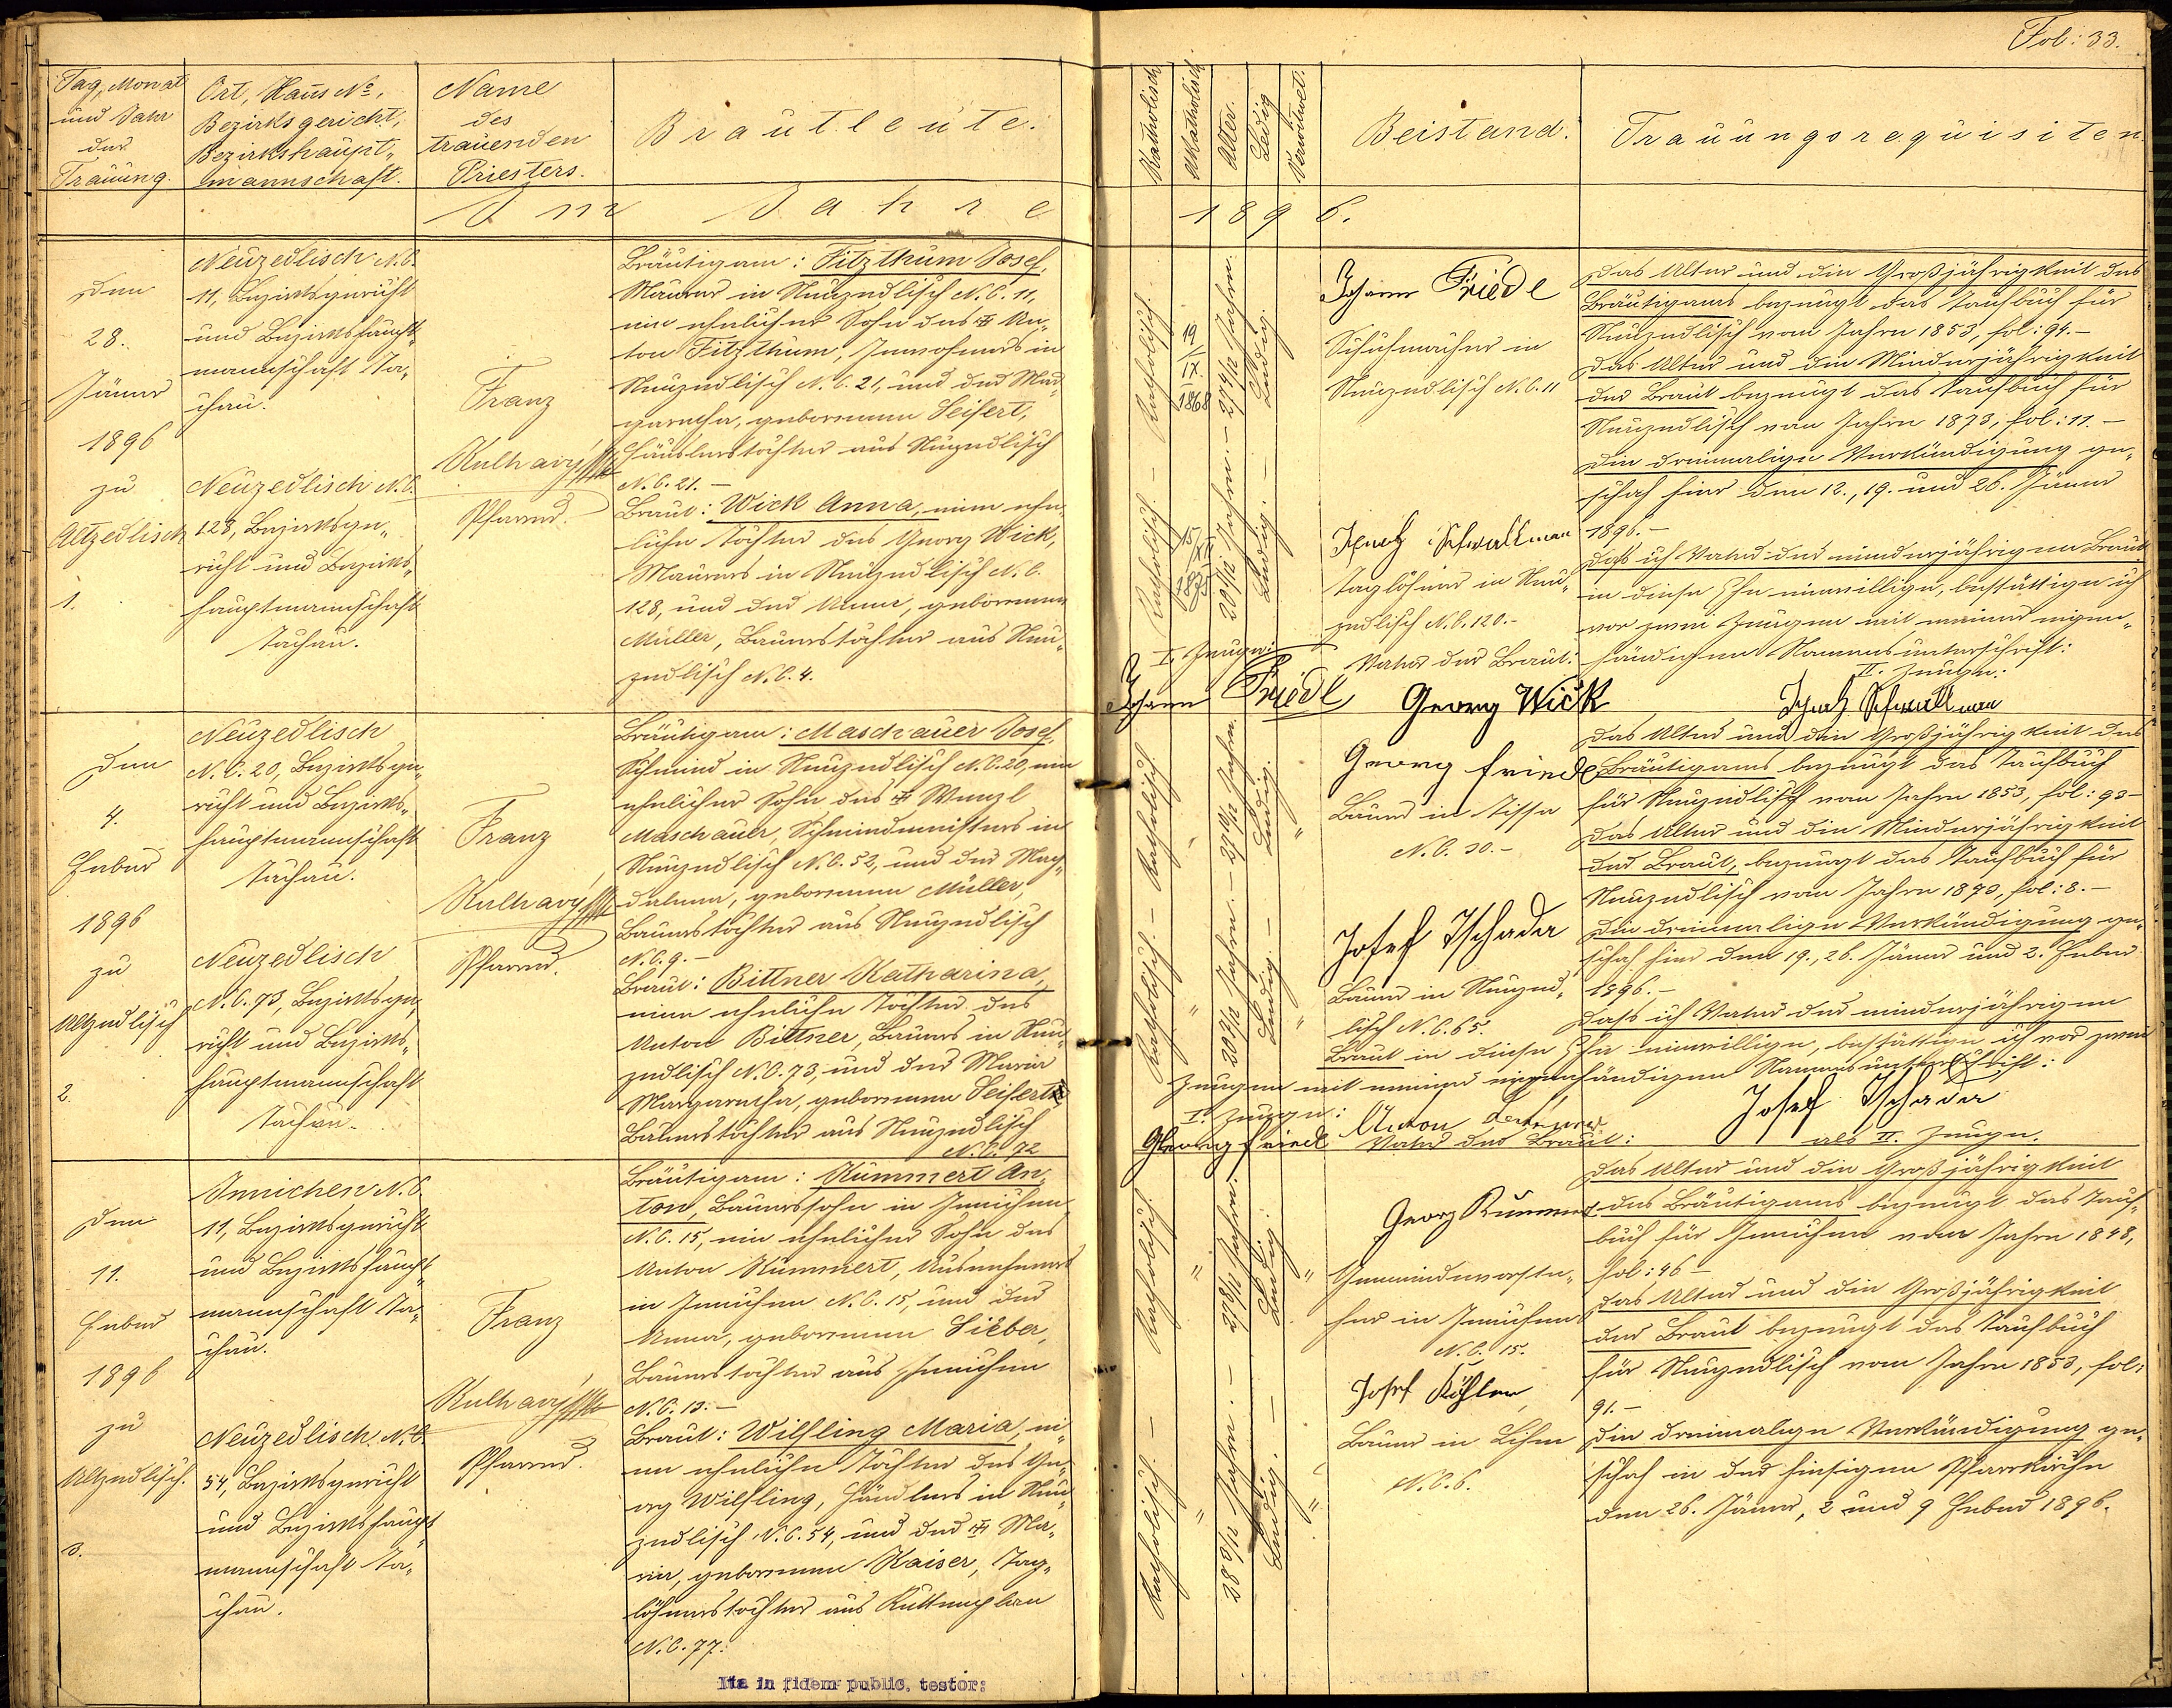 Fol: 33.
Tag, Monat
und Jahr
der
Trauung.
Ort, Haus No,
Bezirksgericht,
Bezirkshaupt-
mannschaft.
Name
des
trauenden
Priesters.
Brautleute.
Katholisch
Akatholisch.
Alter.
Ledig
Verwitwet.
Beistand.
Trauungsrequisiten
Im Jahre
1896.
Den
28.
Jäner
1896
zu
Altzedlisch
1.
Neuzedlisch N.C.
11, Bezirksgericht
und Bezirkshaupt-
mannschaft Ta-
chau.
Neuzedlisch N.C.
128, Bezirksge-
richt und Bezirks-
hauptmannschaft
Tachau.
Franz
Kulhavý
Pfarrer.
Bräutigam: Fitzthum Josef,
Maurer in Neuzedlisch N.C. 11,
ein ehelicher Sohn des An-
ton Fitzthum, Inwohners in
Neuzedlisch N.C. 21, und der Mar-
garetha, geborenen Seifert,
Häuslerstochter aus Neuzedlisch
N.C. 21.-
Braut: Wick Anna, eine ehe-
liche Tochter des Georg Wick,
Maurers in Neuzedlisch N.C.
128, und der Anna, geborenen
Müller, Bauerstochter aus Neu-
zedlisch N.C. 4.
Katholisch. - Katholisch.
19/IX. 1868
15/
27 4/12 Jahren.
Ledig. - Ledig.
Johann Friedl
Schuhmacher in
Neuzedlisch N.C. 11
Ignatz Schwallman
Taglöhner in Neu-
zedlisch N.C. 120.-
Das Alter und die Großjährigkeit des
Bräutigams bezeugt das Taufbuch für
Neuzedlisch vom Jahre 1853, fol: 94.-
Das Alter und die Minderjährigkeit
der Braut bezeugt das Taufbuch für
Neuzedlisch vom Jahre 1873, fol: 11.-
Die dreimalige Verkündigung ge-
schah hier den 12., 19. und 26. Jäner
1896.-
Daß ich Vater der minderjährigen Braut
in diese Ehe einwillige, bestättige ich
vor zwei Zeugen mit meiner eigen-
händigen Namensunterschrift:
I. Zeuge:
Vater der Braut:
II. Zeuge:
Johann Friedl
Georg Wick
Ignatz Schwallman
Den
4.
Feber
1896
zu
Altzedlisch
2.
Neuzedlisch
N.C. 20, Bezirksge-
richt und Bezirks-
hauptmannschaft
Tachau.
Neuzedlisch
N.C. 73, Bezirksge-
richt und Bezirks-
hauptmannschaft
Tachau.
Franz
Kulhavý
Pfarrer.
Bräutigam: Maschauer Josef,
Schmied in Neuzedlisch N.C. 20, ein
ehelicher Sohn des Wenzl
Maschauer, Schmiedmeisters in
Neuzedlisch N.C. 52, und der Mag-
dalena, geborenen Müller,
Bauerstochter aus Neuzedlisch
N.C. 9.-
Braut: Bittner Katharina,
eine eheliche Tochter des
Anton Bittner, Bauers in Neu-
zedlisch N.C. 73, und der Maria
Margaretha, geborenen Seifert
Bauerstochter aus Neuzedlisch
N.C. 72
Katholisch. - Katholisch.
Ledig. - Ledig.
Georg Friedl
Bauer in Tissa
N.C. 30.-
Josef Tschada
Bauer in Neuzed-
lisch N.C. 65.
Das Alter und die Großjährigkeit des
Bräutigams bezeugt das Taufbuch
für Neuzedlisch vom Jahre 1853, fol: 93-
Das Alter und die Minderjährigkeit
der Braut, bezeugt das Taufbuch für
Neuzedlisch vom Jahre 1873, fol: 8.-
Die dreimalige Verkündigung ge-
schah hier den 19., 26. Jäner und 2. Feber
1896.-
Daß ich Vater der minderjährigen
Braut in diese Ehe einwillige, bestättige ich vor zwei
Zeugen mit meiner eigenhändigen Namensunterschrift:
I. Zeuge:
Georg Friedl
Anton
Vater der Braut:
Josef Tschada
als II. Zeuge.
Den
11.
Feber
1896
zu
Altzedlisch.
3.
Innichen N.C.
11, Bezirksgericht
und Bezirkshaupt-
mannschaft Ta-
chau.
Neuzedlisch. N.C.
54, Bezirksgericht
und Bezirkshaupt-
mannschaft Ta-
chau.
Franz
Kulhavý
Pfarrer.
Bräutigam: Kummert An-
ton, Bauerssohn in Innichen
N.C. 15, ein ehelicher Sohn des
Anton Kummert, Ausnehmers
in Innichen N.C. 15, und der
Anna, geborenen Lieber,
Bauerstochter aus Innichen
N.C. 13.-
Braut: Wilfling Maria, ei-
ne eheliche Tochter des Ge-
org Wilfling, Händlers in Neu-
zedlisch N.C. 54, und der Ma-
ria, geborenen Kaiser, Tag-
löhnerstochter aus Kuttenplan
N.C. 77.
Katholisch. - Katholisch.
Ledig. - Ledig.
Georg Kummert
Gemeindevorste-
her in Innichen
N.C. 15.
Josef Köhler
Bauer in Lihm
N.C. 6.
Das Alter und die Großjährigkeit
des Bräutigams bezeugt das Tauf-
buch für Innichen vom Jahre 1848,
fol: 46-
Das Alter und die Großjährigkeit
der Braut bezeugt das Taufbuch
für Neuzedlisch vom Jahre 1853, fol:
91.-
Die dreimalige Verkündigung ge-
schah in der hiesigen Pfarrkirche
den 26. Jäner, 2 und 9 Feber 1896.
Ita in fidem public. testor: